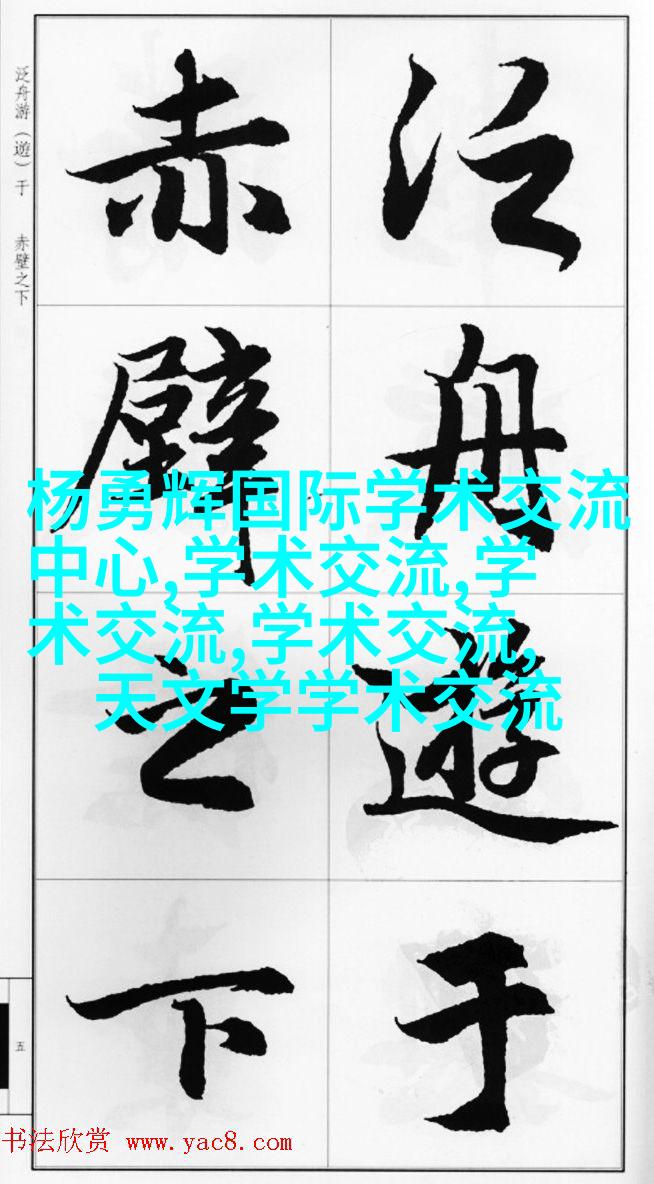 泛舟游（遊）于　赤壁之下
泛舟遊于
赤壁之下
杨勇辉国际学术交流
中心,学术交流,学
术交流,学术交流,
天文学学术交流
五
书法欣赏 www.yac8.com